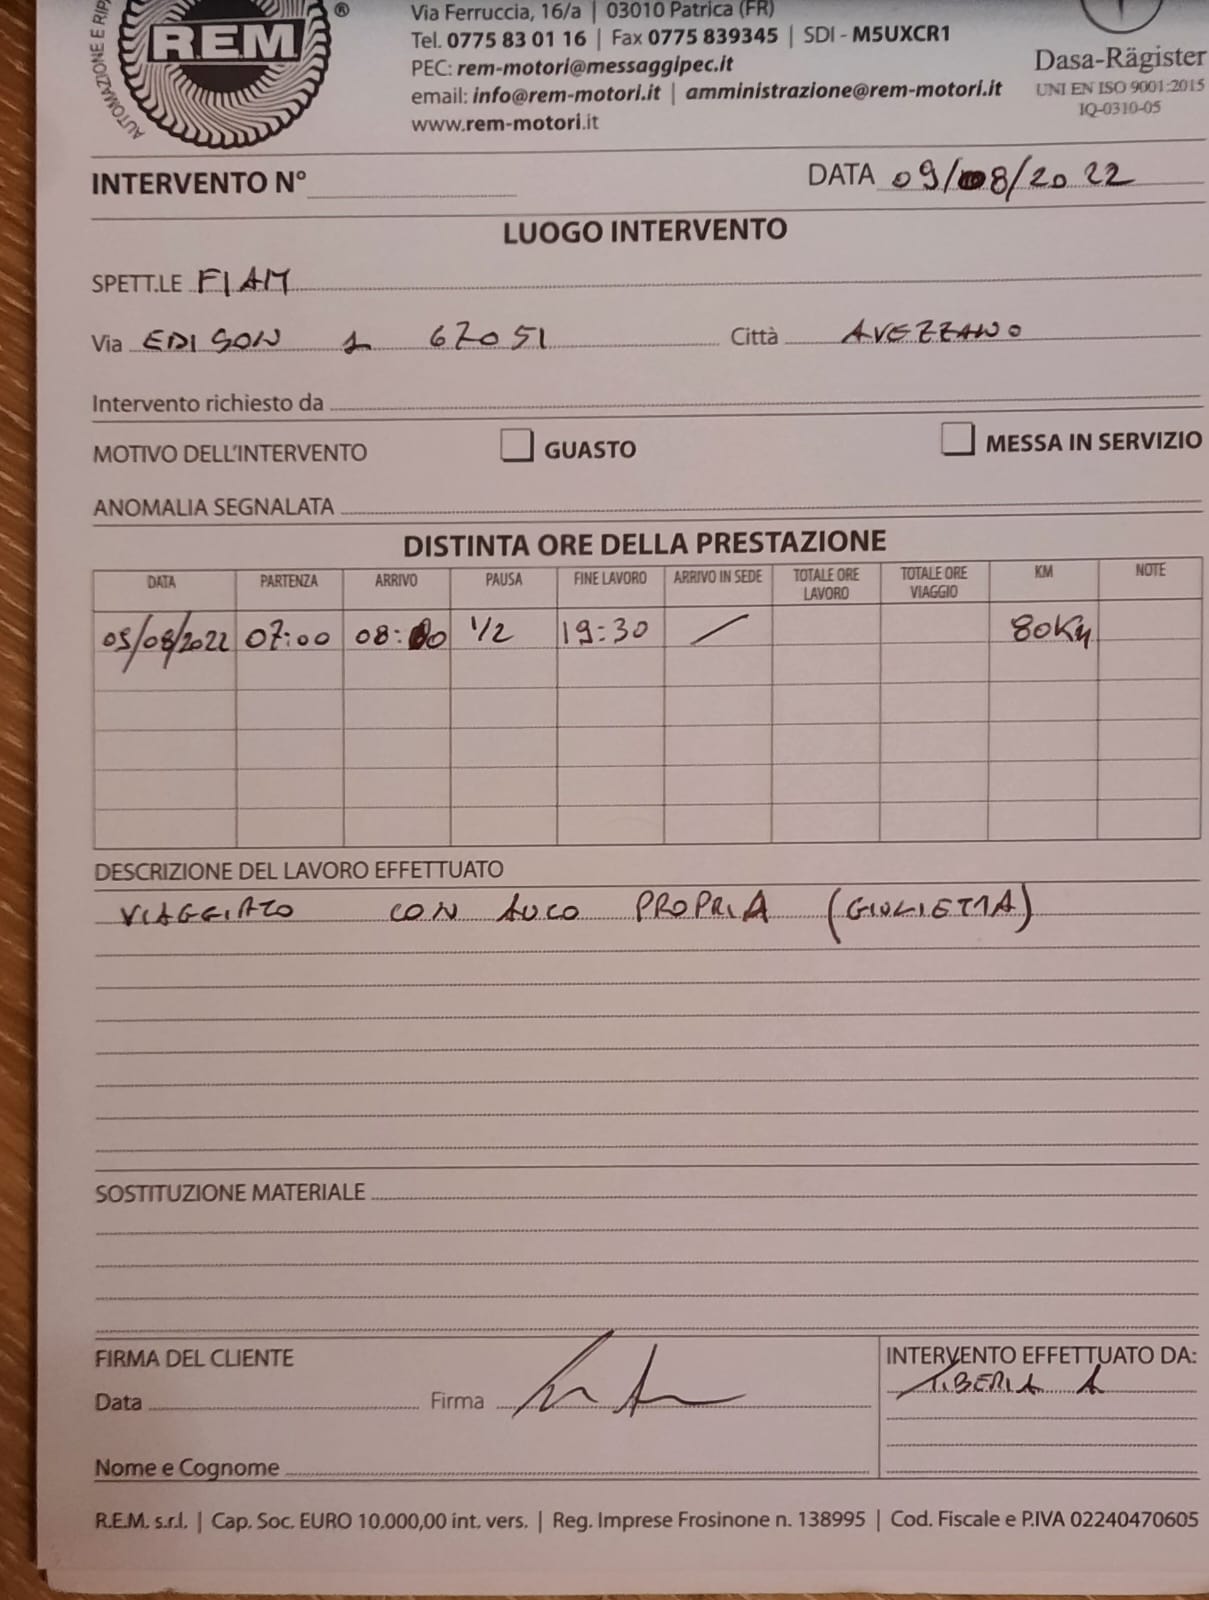 AUTOMAZIONE E RIP
R.E.M ®
Via Ferruccia, 16/a | 03010 Patrica (FR)
Tel. 0775 83 01 16 | Fax 0775 839345 | SDI - M5UXCR1
PEC: rem-motori@messaggipec.it
email: info@rem-motori.it | amministrazione@rem-motori.it
www.rem-motori.it
Dasa-Rägister
UNI EN ISO 9001:2015
IQ-0310-05
INTERVENTO N° DATA 09/08/2022
LUOGO INTERVENTO
SPETT.LE FIAM
Via EDISON 1 67051 Città AVEZZANO
Intervento richiesto da
MOTIVO DELL'INTERVENTO GUASTO MESSA IN SERVIZIO
ANOMALIA SEGNALATA
DISTINTA ORE DELLA PRESTAZIONE
DATA PARTENZA ARRIVO PAUSA FINE LAVORO ARRIVO IN SEDE TOTALE ORE LAVORO TOTALE ORE VIAGGIO KM NOTE
09/08/2022 07:00 08:00 1/2 19:30 / 80KM
DESCRIZIONE DEL LAVORO EFFETTUATO
VIAGGIATO CON AUTO PROPRIA (GIULIETTA)
SOSTITUZIONE MATERIALE
FIRMA DEL CLIENTE
Data Firma
Nome e Cognome
INTERVENTO EFFETTUATO DA:
TIBERIA A
R.E.M. s.r.l. | Cap. Soc. EURO 10.000,00 int. vers. | Reg. Imprese Frosinone n. 138995 | Cod. Fiscale e P.IVA 02240470605